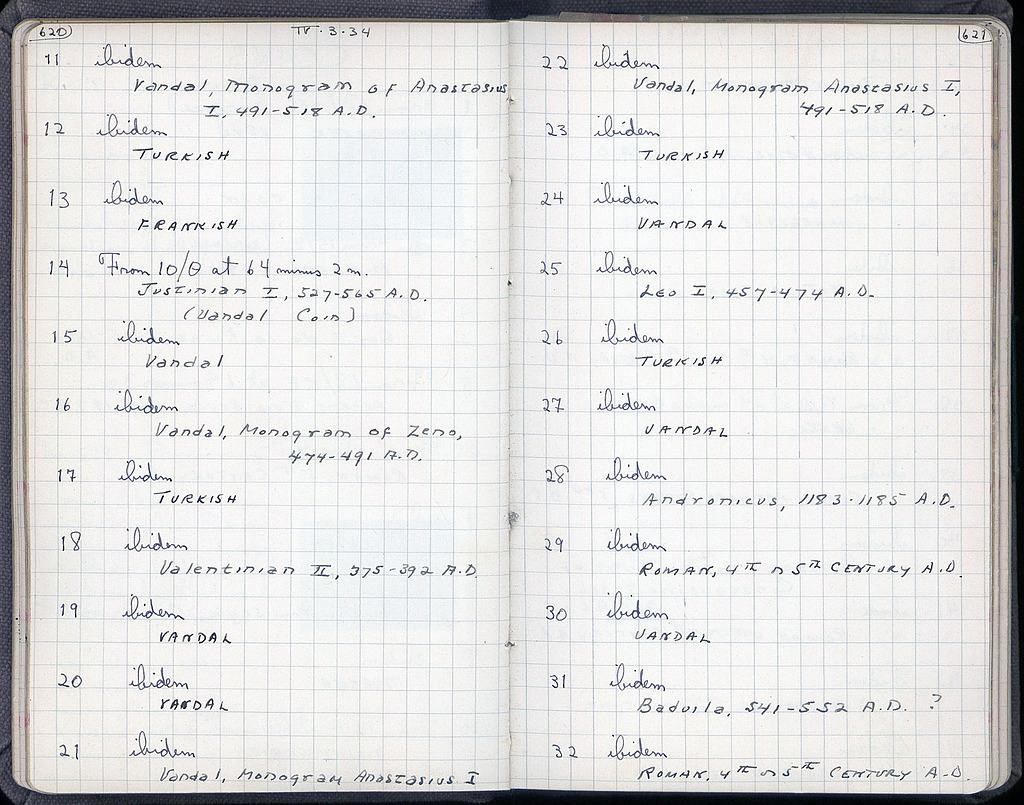 620
IV · 3 · 34
11 ibidem
Vandal, Monogram of Anastasius
I, 491-518 A.D.
12 ibidem
TURKISH
13 ibidem
FRANKISH
14 From 10/Θ at 64 minus 2 m.
Justinian I, 527-565 A.D.
(Vandal Coin)
15 ibidem
Vandal
16 ibidem
Vandal, Monogram of Zeno,
474-491 A.D.
17 ibidem
TURKISH
18 ibidem
Valentinian II, 375-392 A.D.
19 ibidem
VANDAL
20 ibidem
VANDAL
21 ibidem
Vandal, Monogram Anastasius I
621
22 ibidem
Vandal, Monogram Anastasius I,
491-518 A.D.
23 ibidem
TURKISH
24 ibidem
VANDAL
25 ibidem
Leo I, 457-474 A.D.
26 ibidem
TURKISH
27 ibidem
VANDAL
28 ibidem
Andronicus, 1183-1185 A.D.
29 ibidem
ROMAN, 4TH 5TH CENTURY A.D.
30 ibidem
VANDAL
31 ibidem
Baduila, 541-552 A.D. ?
32 ibidem
ROMAN, 4TH 5TH CENTURY A.D.